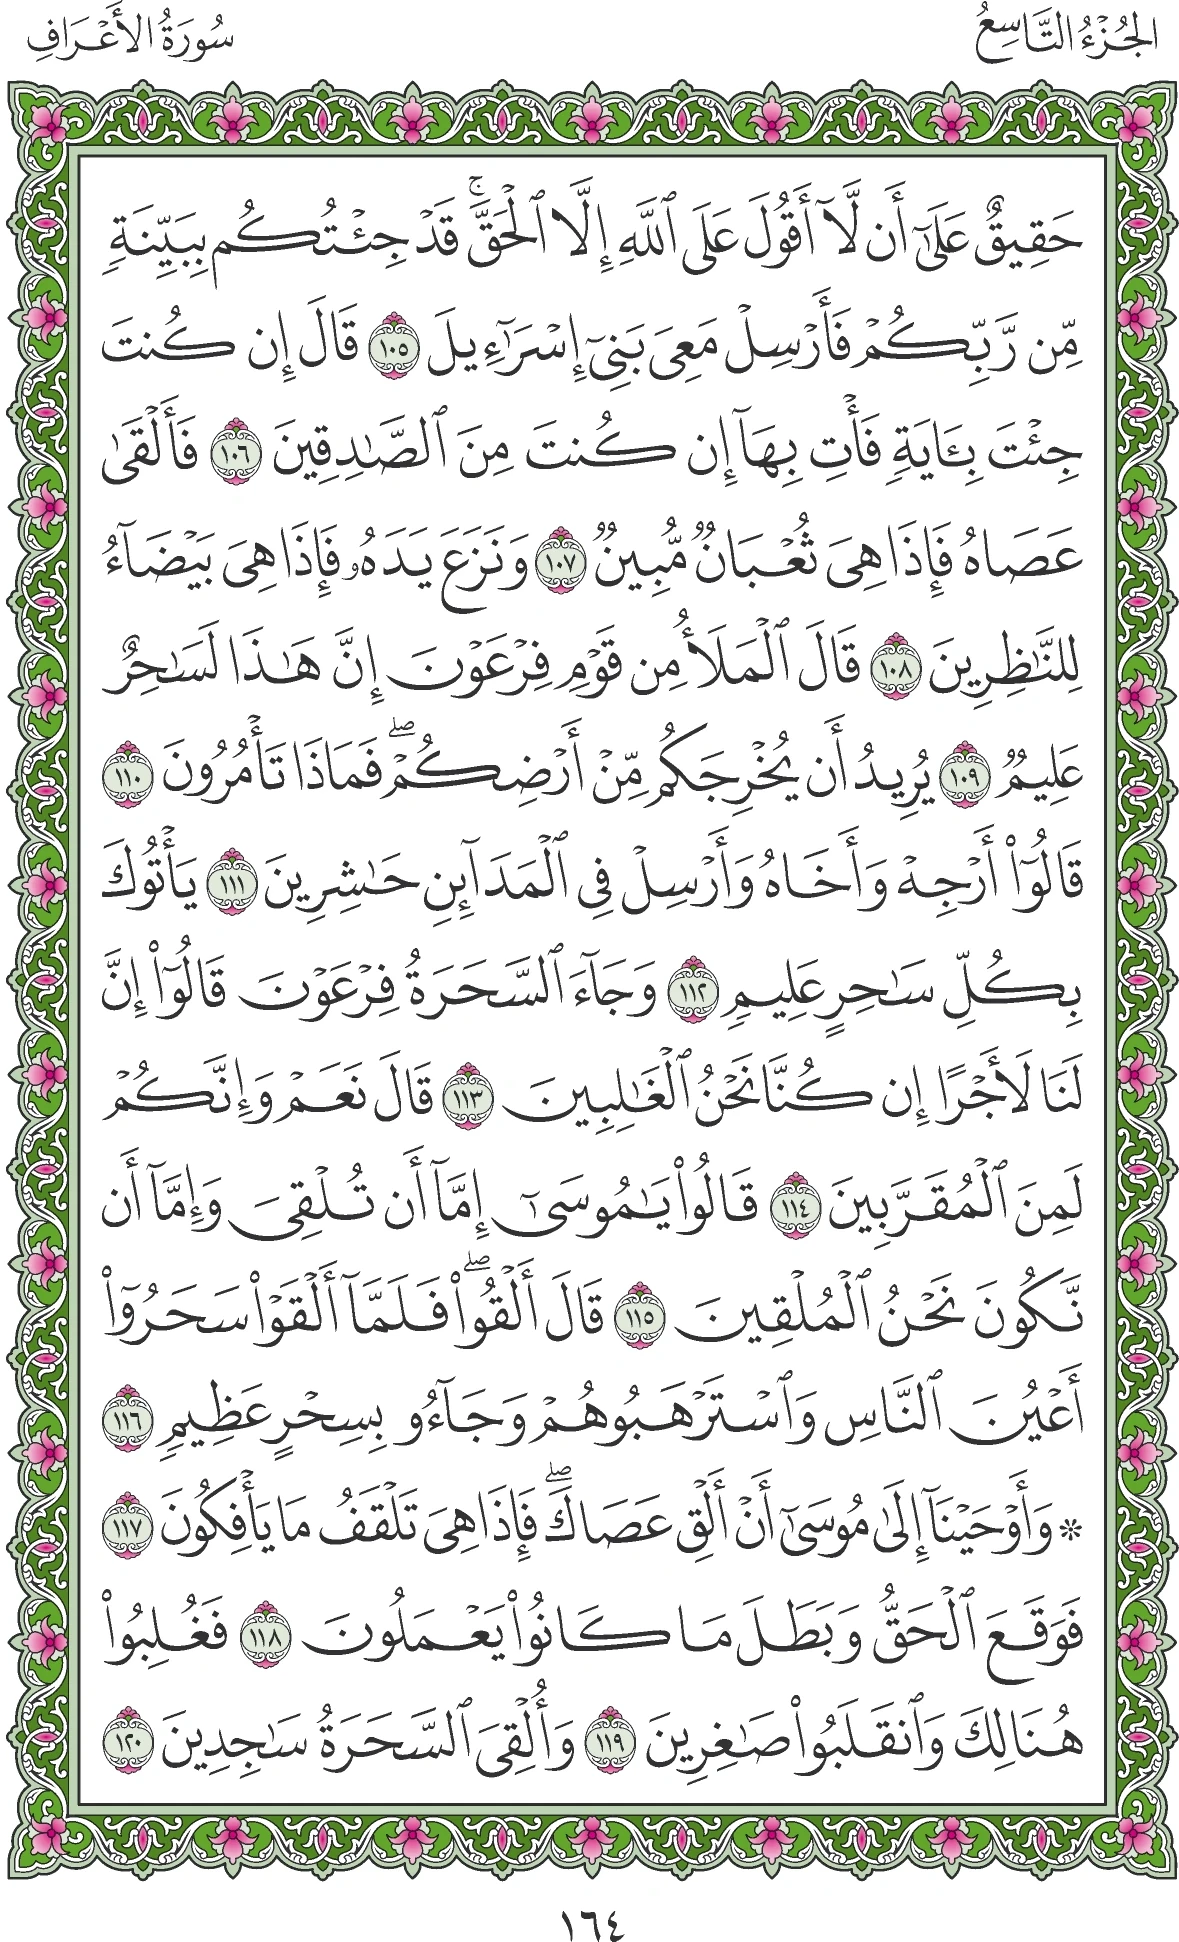 الجُزْءُ التَّاسِعُ
سُورَةُ الأَعْرَافِ
حَقِيقٌ عَلَىٰٓ أَن لَّآ أَقُولَ عَلَى ٱللَّهِ إِلَّا ٱلْحَقَّۚ قَدْ جِئْتُكُم بِبَيِّنَةٍ
مِّن رَّبِّكُمْ فَأَرْسِلْ مَعِىَ بَنِىٓ إِسْرَٰٓءِيلَ ١٠٥ قَالَ إِن كُنتَ
جِئْتَ بِـَٔايَةٍ فَأْتِ بِهَآ إِن كُنتَ مِنَ ٱلصَّٰدِقِينَ ١٠٦ فَأَلْقَىٰ
عَصَاهُ فَإِذَا هِىَ ثُعْبَانٌ مُّبِينٌ ١٠٧ وَنَزَعَ يَدَهُۥ فَإِذَا هِىَ بَيْضَآءُ
لِلنَّٰظِرِينَ ١٠٨ قَالَ ٱلْمَلَأُ مِن قَوْمِ فِرْعَوْنَ إِنَّ هَٰذَا لَسَٰحِرٌ
عَلِيمٌ ١٠٩ يُرِيدُ أَن يُخْرِجَكُم مِّنْ أَرْضِكُمْۖ فَمَاذَا تَأْمُرُونَ ١١٠
قَالُوٓا۟ أَرْجِهْ وَأَخَاهُ وَأَرْسِلْ فِى ٱلْمَدَآئِنِ حَٰشِرِينَ ١١١ يَأْتُوكَ
بِكُلِّ سَٰحِرٍ عَلِيمٍ ١١٢ وَجَآءَ ٱلسَّحَرَةُ فِرْعَوْنَ قَالُوٓا۟ إِنَّ
لَنَا لَأَجْرًا إِن كُنَّا نَحْنُ ٱلْغَٰلِبِينَ ١١٣ قَالَ نَعَمْ وَإِنَّكُمْ
لَمِنَ ٱلْمُقَرَّبِينَ ١١٤ قَالُوا۟ يَٰمُوسَىٰٓ إِمَّآ أَن تُلْقِىَ وَإِمَّآ أَن
نَّكُونَ نَحْنُ ٱلْمُلْقِينَ ١١٥ قَالَ أَلْقُوا۟ۖ فَلَمَّآ أَلْقَوْا۟ سَحَرُوٓا۟
أَعْيُنَ ٱلنَّاسِ وَٱسْتَرْهَبُوهُمْ وَجَآءُو بِسِحْرٍ عَظِيمٍ ١١٦
۞ وَأَوْحَيْنَآ إِلَىٰ مُوسَىٰٓ أَنْ أَلْقِ عَصَاكَۖ فَإِذَا هِىَ تَلْقَفُ مَا يَأْفِكُونَ ١١٧
فَوَقَعَ ٱلْحَقُّ وَبَطَلَ مَا كَانُوا۟ يَعْمَلُونَ ١١٨ فَغُلِبُوا۟
هُنَالِكَ وَٱنقَلَبُوا۟ صَٰغِرِينَ ١١٩ وَأُلْقِىَ ٱلسَّحَرَةُ سَٰجِدِينَ ١٢٠
١٦٤